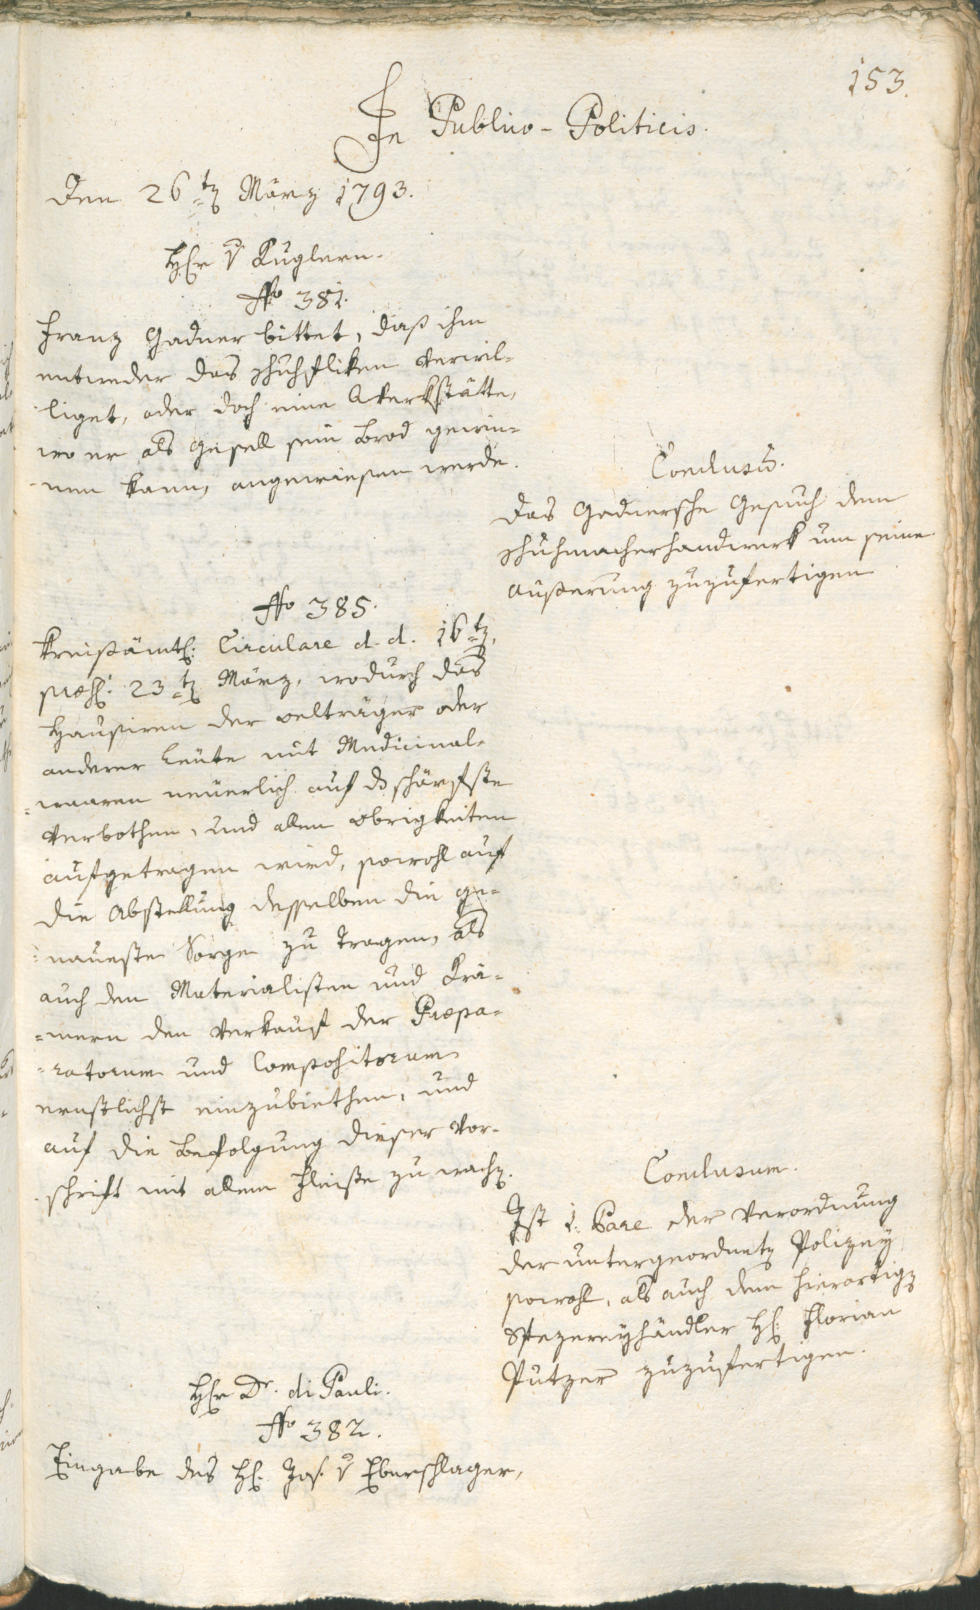 153.
In Publico-Politicis.
Den 26ten März 1793.
Hr v Kuglern.
No 381.
Franz Gadner bittet, daß ihm
entweder das Schuhfliken verwil-
liget, oder doch eine Werkstätte,
wo er als Gesell sein Brod gewin-
nen kann, angewiesen werde.
Conclusum.
Das Gadnersche Gesuch dem
Schuhmacherhandwerk um seine
Äußerung zuzufertigen
No 385.
Kreißämtl: Circulare d. d. 16ten,
præs: 23ten März, wodurch das
Hausiren der Oelträger oder
anderer Leute mit Medicinal-
=waaren neuerlich auf das schärfste
verbothen, und allen Obrigkeiten
aufgetragen wird, sowohl auf
die Abstellung desselben die ge-
=naueste Sorge zu tragen, als
auch den Materialisten und Krä-
=mern den Verkauf der Præpa-
=ratorum und Compositorum
ernstlichst einzubiethen, und
auf die Befolgung dieser Vor-
schrift mit allem Fleiße zu wachen.
Conclusum.
Ist 1. Pare der Verordnung
der untergeordneten Polizey
sowohl, als auch dem hierortigen
Spezereyhändler H: Florian
Putzer zuzufertigen.
Hr Dr. di Pauli.
No 382.
Eingabe des H: Jos. v Eberschlager,